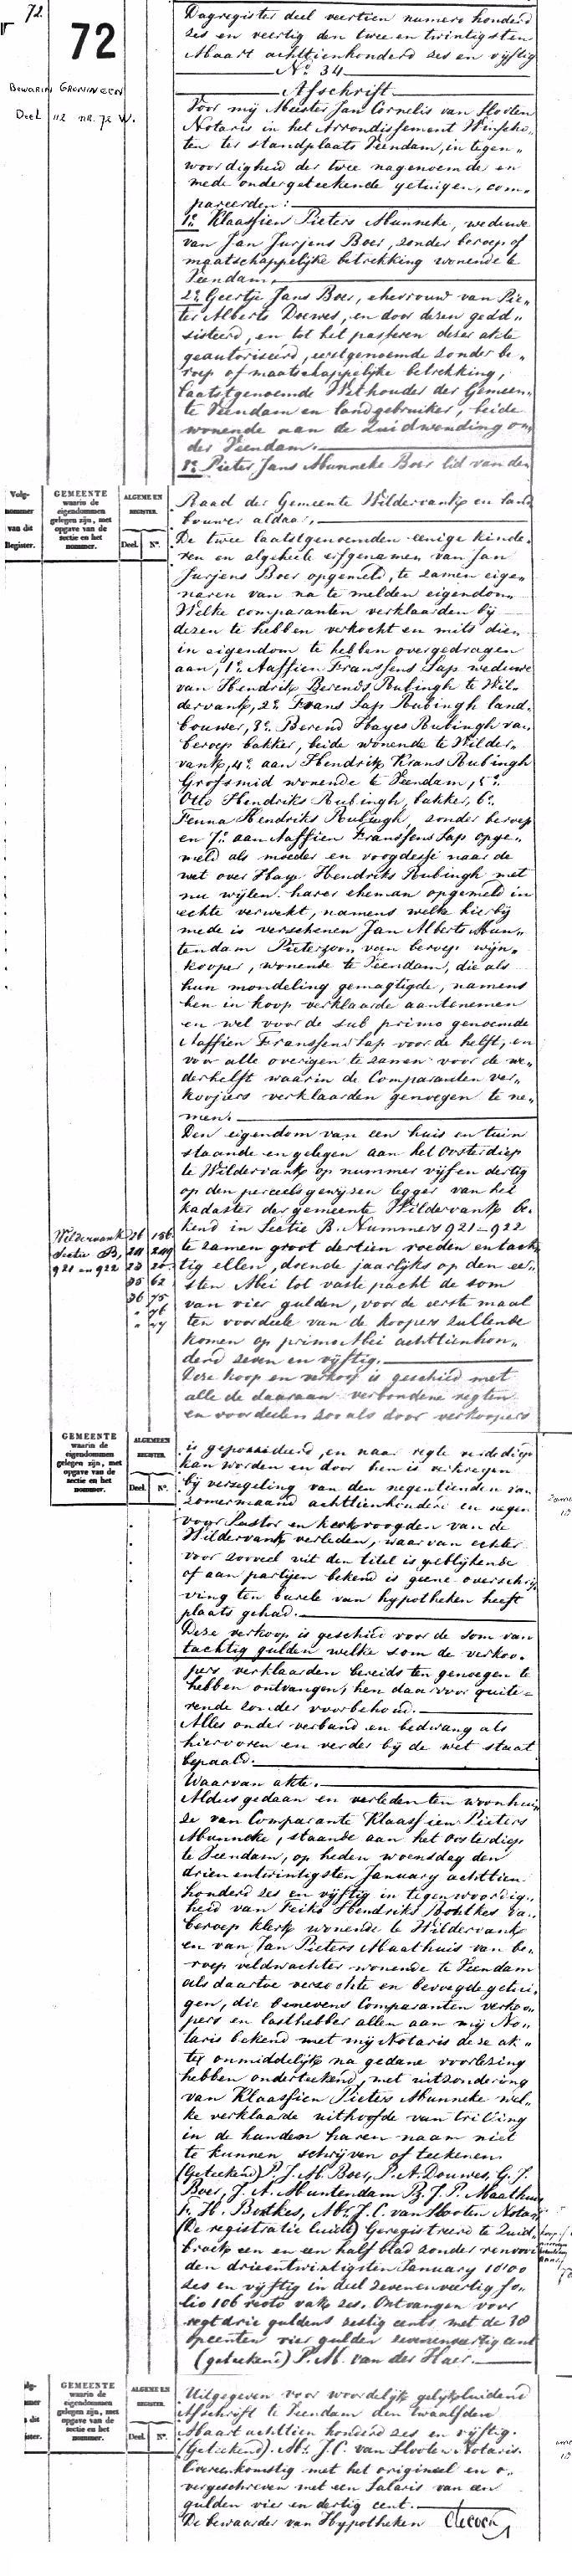 72.
72
Bewaring Groningen
Deel 112 nr. 72 W.
Dagregister deel veertien numero honderd
zes en veertig den twee en twintigsten
Maart achttienhonderd zes en vijftig
No 34
Afschrift
Voor mij Meester Jan Cornelis van Slooten
Notaris in het Arrondissement Winscho„
ten ter standplaats Veendam, in tegen„
woordigheid der twee nagenoemde en
mede ondergeteekende getuigen, com„
pareerden:
1o Klaassien Pieters Munneke, weduwe
van Jan Jurjens Boer, zonder beroep of
maatschappelijke betrekking wonende te
Veendam.
2o Geertje Jans Boer, ehevrouw van Pie„
ter Alberts Douwes, en door dezen geäd„
sisteerd, en tot het passeren dezer akte
geautoriseerd, eerstgenoemde zonder be„
roep of maatschappelijke betrekking,
laatstgenoemde Wethouder der Gemeen„
te Veendam en landgebruiker, beide
wonende aan de Zuidwending on„
der Veendam.
3o Pieter Jans Munneke Boer lid van den
Volg-
nommer
van dit
Register.
GEMEENTE
waarin de
eigendommen
gelegen zijn, met
opgave van de
sectie en het
nommer.
ALGEMEEN
REGISTER.
Deel. No.
Raad der Gemeente Wildervank en land
bouwer aldaar,
De twee laatstgenoemden eenige kinde„
ren en algeheele erfgenamen van Jan
Jurjens Boer opgemeld, te zamen eige„
naren van na te melden eigendom.
Welke comparanten verklaarden bij
dezen te hebben verkocht en mits dien
in eigendom te hebben overgedragen
aan, 1o Aaffien Franssens Sap weduwe
van Hendrik Berends Rubingh te Wil„
dervank, 2o Frans Sap Rubingh land„
bouwer, 3o Berend Hayes Rubingh van
beroep bakker, beide wonende te Wilder„
vank, 4o aan Hendrik Krans Rubingh
Grofsmid wonende te Veendam, 5o
Otto Hendriks Rubingh, bakker, 6o
Fenna Hendriks Rubingh, zonder beroep
en 7o aan Aaffien Franssens Sap opge„
meld als moeder en voogdesse naar de
wet over Haye Hendriks Rubingh met
nu wijlen haren eheman opgemeld in
echte verwekt, namens welke hierbij
mede is verschenen Jan Alberts Mun„
tendam Pieterzoon van beroep wijn„
kooper, wonende te Veendam, die als
hun mondeling gemagtigde, namens
hen in koop verklaarde aantenemen
en wel voor de sub primo genoemde
Aaffien Franssens Sap voor de helft, en
voor alle overigen te zamen voor de we„
derhelft waarin de Comparanten ver„
koopers verklaarden genoegen te ne„
men.
Den eigendom van een huis en tuin
staande en gelegen aan het Oosterdiep
te Wildervank op nummer vijf en dertig
op den perceelsgewijzen legger van het
kadaster der gemeente Wildervank be„
kend in Sectie B. Nummers 921-922
te zamen groot dertien roeden en tach„
tig ellen, doende jaarlijks op den eer„
sten Mei tot vaste pacht de som
van vier gulden, voor de eerste maal
ten voordeele van de koopers zullende
komen op primo Mei achttienhon„
derd zeven en vijftig.
Wildervank 26 156
Sectie B, 20 249
921 en 922 23 20
35 62
36 75
" 76
" 77
Deze koop en verkoop is geschied met
alle de daaraan verbondene regten
en voordeelen zooals door verkoopers
GEMEENTE
waarin de
eigendommen
gelegen zijn, met
opgave van de
sectie en het
nommer.
ALGEMEEN
REGISTER.
Deel. No.
is gepossideerd, en naar regte verdedigd
kan worden en door hen is verkregen
bij verzegeling van den negentienden van
zomermaand achttienhonderd en negen
voor Pastor en kerkvoogden van de
Wildervank verleden, waarvan echter
voor zooveel uit den titel is geblijkende
of aan partijen bekend is geene overschrij„
ving ten burele van hypotheken heeft
plaats gehad.
Deze verkoop is geschied voor de som van
tachtig gulden welke som de verkoo„
pers verklaarden bereids ten genoegen te
hebben ontvangen, hen daarvoor quite„
rende zonder voorbehoud.
Alles onder verband en bedwang als
hiervoren en verder bij de wet staat
bepaald.
Waarvan akte.
Aldus gedaan en verleden ten woonhui„
ze van Comparante Klaassien Pieters
Munneke, staande aan het Oosterdiep
te Veendam, op heden woensdag den
drieentwintigsten January achttien
honderd zes en vijftig in tegenwoordig„
heid van Feiko Hendriks Bontkes van
beroep klerk wonende te Wildervank
en van Jan Pieters Maathuis van be„
roep veldwachter wonende te Veendam
als daartoe verzochte en bevoegde getui„
gen, die benevens Comparanten verkoo„
pers en lasthebber allen aan mij No„
taris bekend met mij Notaris deze ak„
te onmiddelijk na gedane voorlezing
hebben onderteekend, met uitzondering
van Klaassien Pieters Munneke wel„
ke verklaarde uithoofde van trilling
in de handen haren naam niet
te kunnen schrijven of teekenen.
(Geteekend) P. J. M. Boer, P. A. Douwes, G. J.
Boer, J. A. Muntendam Pz. J. P. Maathuis
F. H. Bontkes, Mr. J. C. van Slooten Notaris
(De registratie luidt) Geregistreerd te Zuid„
broek een en een half blad zonder renvooi
den drieentwintigsten January 1800
zes en vijftig in deel zevenenveertig fo„
lio 106 recto vak zes. Ontvangen voor
regt drie guldens zestig cents met de 38
opcenten vier gulden zevenenveertig cent
(geteekend) P. M. van der Haer.
GEMEENTE
waarin de
eigendommen
gelegen zijn, met
opgave van de
sectie en het
nommer.
ALGEMEEN
REGISTER.
Deel. No.
Uitgegeven voor woordelijk gelijkluidend
Afschrift te Veendam den twaalfden
Maart achttien honderd zes en vijftig.
(Geteekend). Mr. J. C. van Slooten Notaris.
Overeenkomstig met het origineel en o„
vergeschreven met een Salaris van een
gulden vier en dertig cent.
De bewaarder van Hypotheken